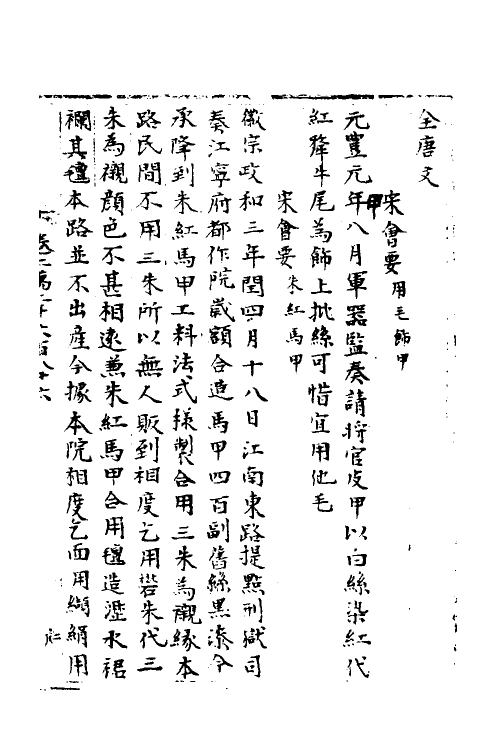 全唐文
宋會要 用毛飾甲
甲
元豐元年八月軍器監奏請將官皮甲以白絲染紅代
紅犛牛尾為飾上批絲可惜宜用他毛
宋會要 朱紅馬甲
徽宗政和三年閏四月十八日江南東路提點刑獄司
奏江寧府都作院歲額合造馬甲四百副舊絲黑漆今
承降到朱紅馬甲工料法式樣製合用三朱為襯緣本
路民間不用三朱所以無人販到相度乞用礬朱代三
朱為襯顏色不甚相遠兼朱紅馬甲合用氊造遮水裙
襴其氊本路並不出産今據本院相度乞面用纈絹用
卷二萬二千六百八十六